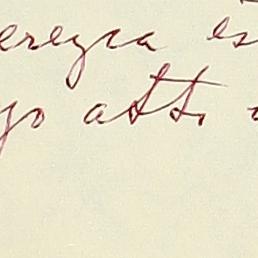 erezca es
yo atts.